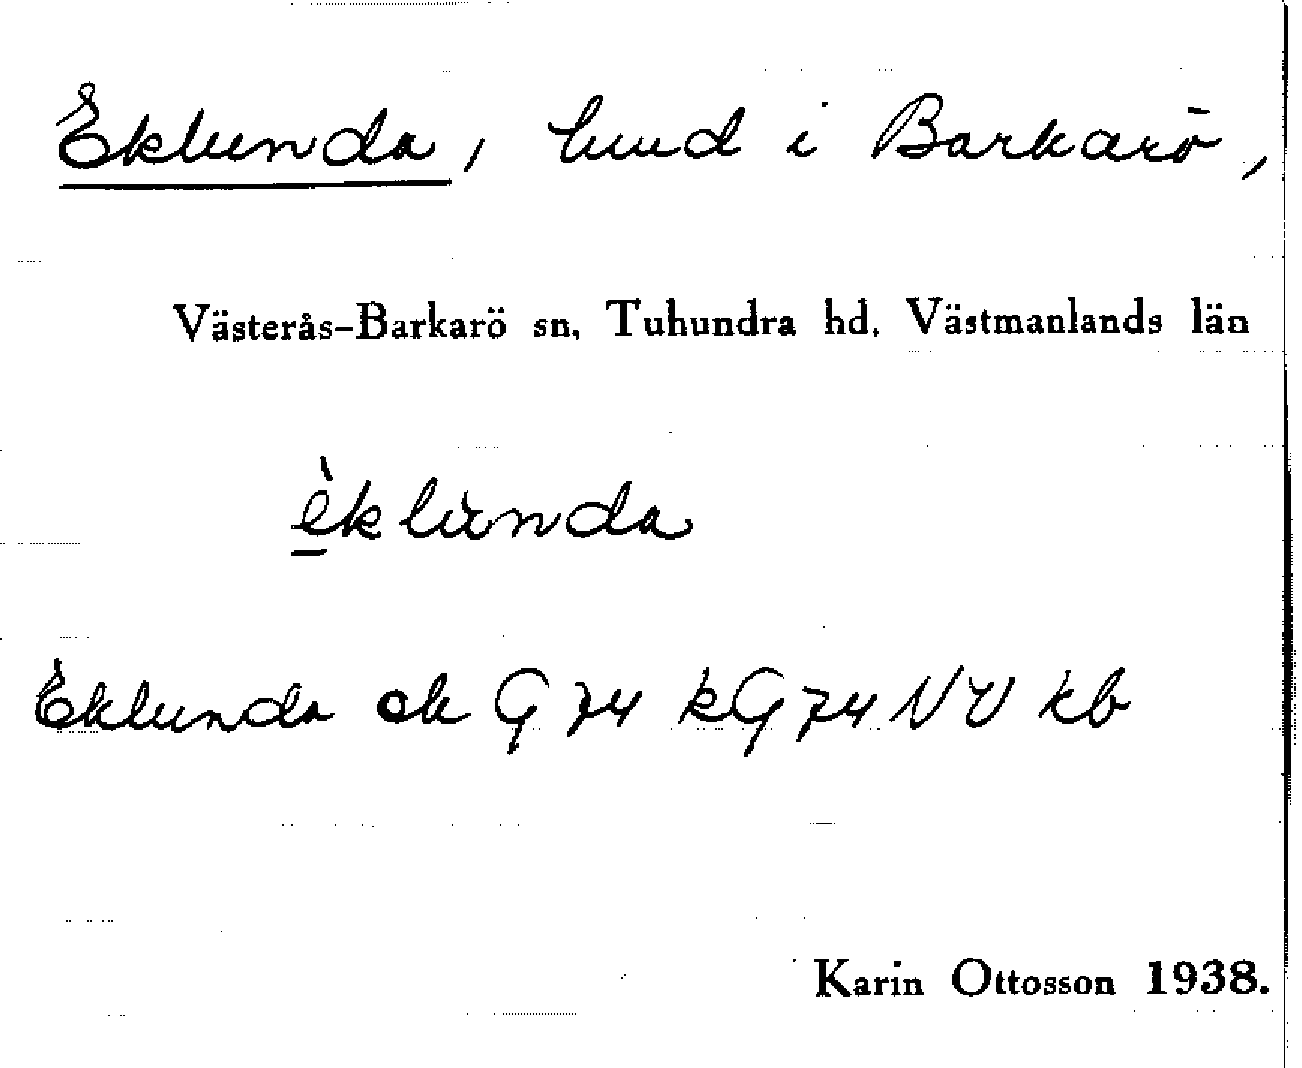 Eklunda, lund i Barkarö,
Västerås-Barkarö sn, Tuhundra hd, Västmanlands län
èklùnda
Eklunda ek G 74 kG 74 NV kb
Karin Ottosson 1938.